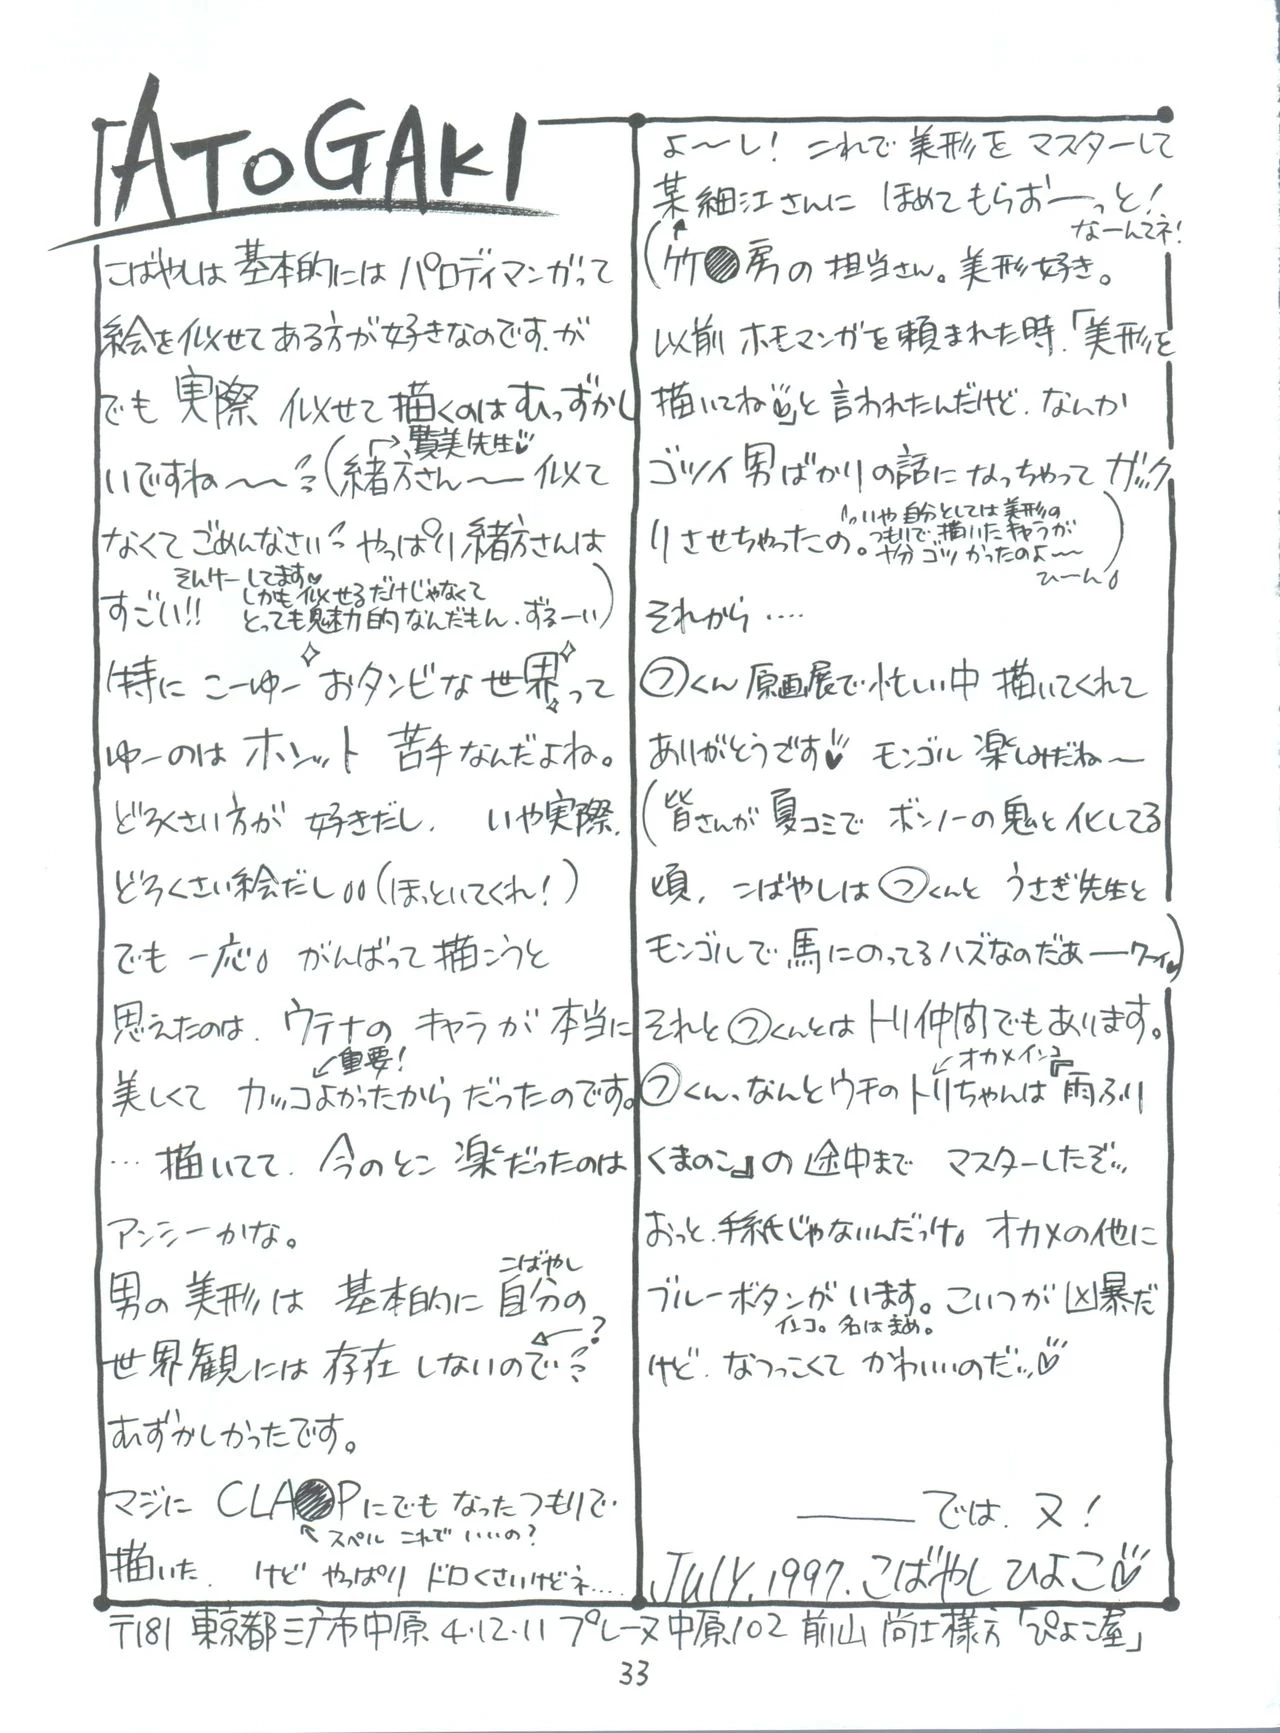 ATOGAKI
こばやしは基本的にはパロディマンガって
絵を似せてある方が好きなのです.が
でも 実際 似せて描くのはむっずかし
いですね〜〜
(緒方さん〜〜似て
→賢美先生♡
なくてごめんなさい やっぱり緒方さんは
すごい!!
そんけーしてます♡
しかも似せるだけじゃなくて
とっても魅力的なんだもん.ずるーい)
特に こーゆー おタンビな世界って
ゆーのは ホンット 苦手なんだよね。
どろくさい方が 好きだし. いや実際.
どろくさい絵だし(ほっといてくれ!)
でも 一応 がんばって描こうと
思えたのは. ウテナの キャラが 本当に
美しくて カッコよかったからだったのです。
重要!
…描いてて. 今のとこ 楽だったのは
アンシーかな。
男の美形は 基本的に 自分の
こばやし
世界観には 存在しないので
?
むずかしかったです。
マジに CLA●Pにでもなったつもりで.
スペル これで いいの?
描いた. けど やっぱり ドロくさいけどネ....
よ〜し! これで美形を マスターして
某細江さんに ほめてもらおーっと!
なーんてネ!
(竹●房の 担当さん。美形好き。
以前 ホモマンガを頼まれた時.「美形を
描いてね♡」と 言われたんだけど. なんか
ゴツイ男ばかりの話に なっちゃって ガック
リさせちゃったの。
いや自分としては美形の
つもりで描いたキャラが
ゴツかったのよ〜〜
ひーん)
それから ....
㋫くん 原画展で忙しい中 描いてくれて
ありがとうです♡ モンゴル 楽しみだね〜
(皆さんが 夏コミで ボンノーの鬼と化してる
頃. こばやしは ㋫くんと うさぎ先生と
モンゴルで 馬にのってるハズなのだあーワーイ♡)
それと ㋫くんとはトリ仲間でもあります。
オカメインコ
㋫くん、なんとウチのトリちゃんは『雨ふり
くまのこ』の 途中まで マスターしたぞ
おっと.手紙じゃないんだっけ。 オカメの他に
ブルーボタンが います。こいつが 凶暴だ
インコ。名はまめ。
けど. なつっこくて かわいいのだ♡
――では. 又!
JULY.1997.こばやし ひよこ♡
〒181 東京都三鷹市中原4-12-11 プレーヌ中原102 前山 尚士様方「ぴよこ屋」
33